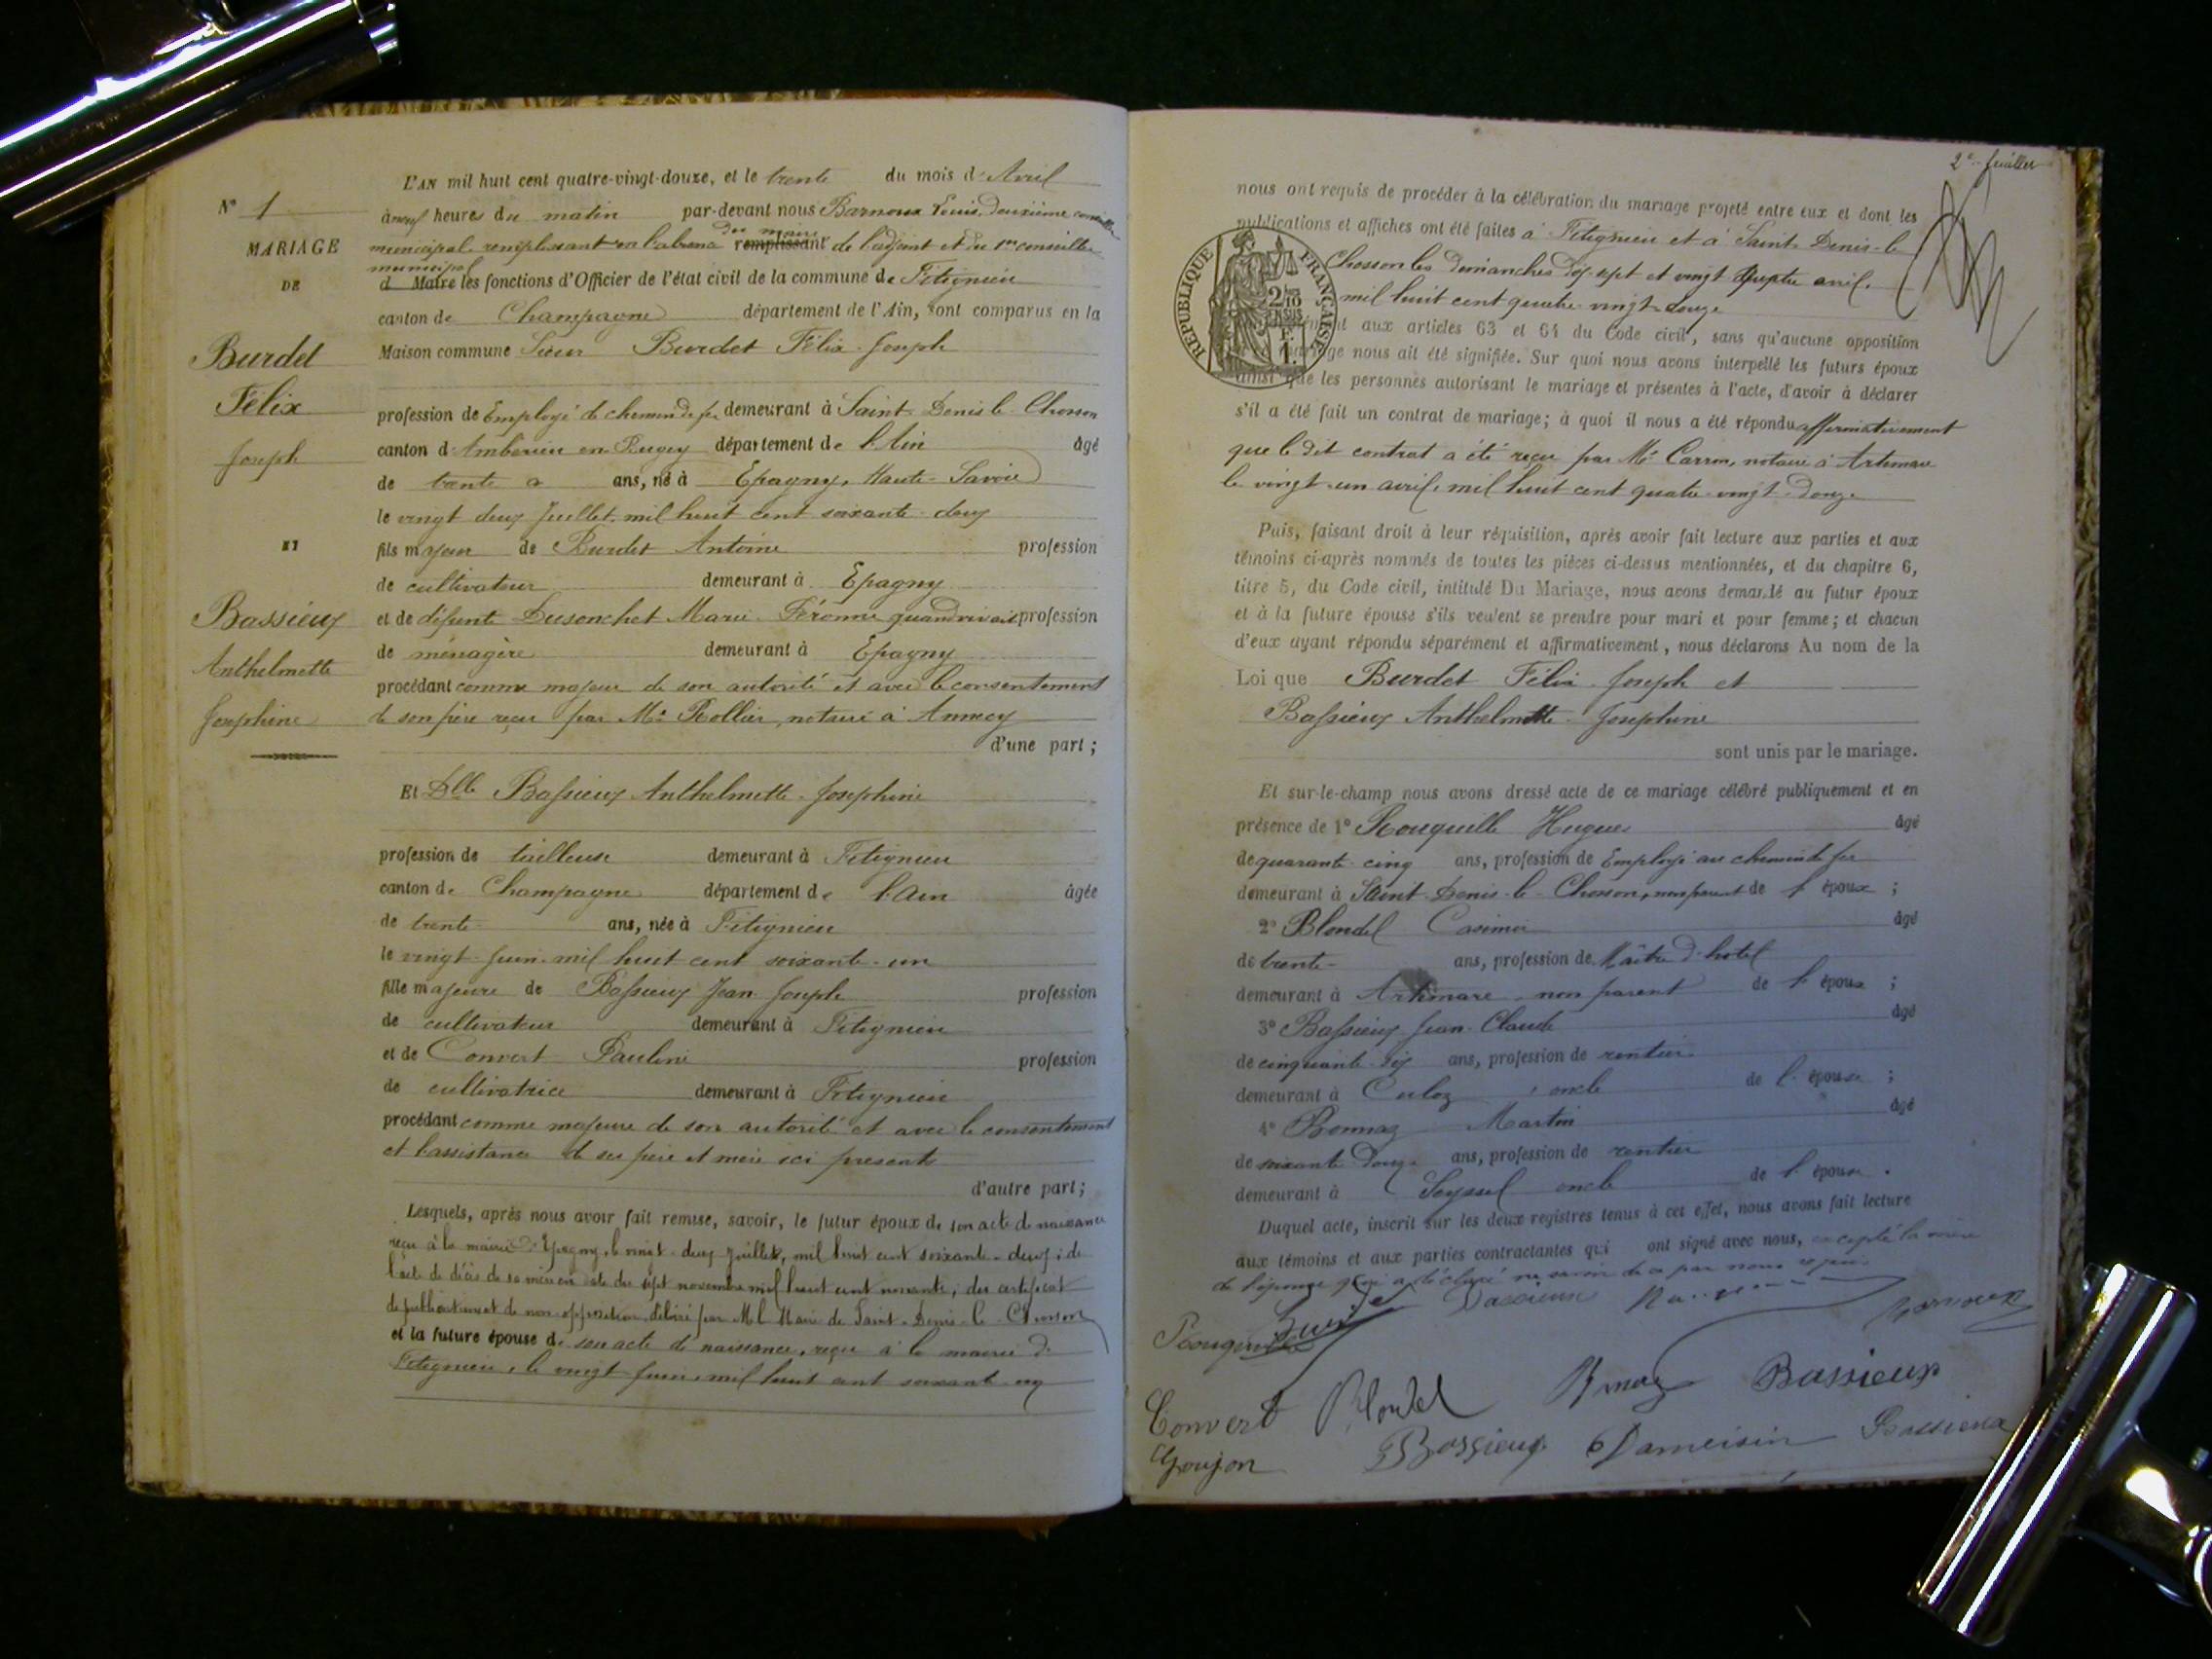 L'AN mil huit cent quatre-vingt-douze, et le trente du mois d' Avril
N° 1
à neuf heures du matin par-devant nous Barnoux Louis, Deuxième conseiller
MARIAGE
du maire
municipal remplissant en l'absence remplissant de l'adjoint et du 1er conseiller
municipal
DE
d Maire les fonctions d'Officier de l'état civil de la commune de Fitignieu
canton de Champagne département de l'Ain, sont comparus en la
Burdet
Maison commune Sieur Burdet Félix Joseph
Félix
profession de Employé de chemin de fer demeurant à Saint Denis le Chosson
Joseph
canton d'Ambérieu en Bugey département de l'Ain âgé
de trente ans, né à Epagny, Haute-Savoie
le vingt deux Juillet mil huit cent soixante deux
ET
fils majeur de Burdet Antoine profession
de cultivateur demeurant à Epagny
Bassieux
et de défunte Dusonchet Marie Péronne quand vivait profession
Anthelmette
de ménagère demeurant à Epagny
procédant comme majeur de son autorité et avec le consentement
Josephine
de son père reçu par Me Rollier, notaire à Annecy
d'une part ;
Et Dlle Bassieux Anthelmette Josephine
profession de tailleuse demeurant à Fitignieu
canton de Champagne département de l'Ain âgée
de trente ans, née à Fitignieu
le vingt Juin mil huit cent soixante un
fille majeure de Bassieux Jean Joseph profession
de cultivateur demeurant à Fitignieu
et de Convert Pauline profession
de cultivatrice demeurant à Fitignieu
procédant comme majeure de son autorité et avec le consentement
et l'assistance de ses père et mère ici présents
d'autre part ;
Lesquels, après nous avoir fait remise, savoir, le futur époux de son acte de naissance
reçu à la mairie d'Epagny, le vingt deux Juillet, mil huit cent soixante deux ; de
l'acte de décès de sa mère en date du sept novembre mil huit cent ; du certificat
de publication et de non-opposition délivré par M. le Maire de Saint-Denis-le-Chosson
et la future épouse de son acte de naissance, reçu à la mairie de
Fitignieu, le vingt Juin, mil huit cent soixante un
2e feuillet
nous ont requis de procéder à la célébration du mariage projeté entre eux et dont les
publications et affiches ont été faites à Fitignieu et à Saint Denis-le
Chosson les dimanches dix-sept et vingt quatre avril
mil huit cent quatre-vingt-douze
RÉPUBLIQUE FRANÇAISE
2/10 EN SUS
1 F.
aux articles 63 et 64 du Code civil, sans qu'aucune opposition
mariage nous ait été signifiée. Sur quoi nous avons interpellé les futurs époux
ainsi que les personnes autorisant le mariage et présentes à l'acte, d'avoir à déclarer
s'il a été fait un contrat de mariage ; à quoi il nous a été répondu affirmativement
que le dit contrat a été reçu par Me Carron, notaire à Artemare
le vingt un avril, mil huit cent quatre-vingt-douze
Puis, faisant droit à leur réquisition, après avoir fait lecture aux parties et aux
témoins ci-après nommés de toutes les pièces ci-dessus mentionnées, et du chapitre 6,
titre 5, du Code civil, intitulé Du Mariage, nous avons demandé au futur époux
et à la future épouse s'ils veulent se prendre pour mari et pour femme ; et chacun
d'eux ayant répondu séparément et affirmativement, nous déclarons Au nom de la
Loi que Burdet Félix Joseph et
Bassieux Anthelmette Josephine
sont unis par le mariage.
Et sur-le-champ nous avons dressé acte de ce mariage célébré publiquement et en
présence de 1° Rouquille Hugues âgé
de quarante-cinq ans, profession de Employé au chemin de fer
demeurant à Saint-Denis-le-Chosson, non parent de l'époux ;
2° Blondel Casimir âgé
de trente ans, profession de Maître d'hotel
demeurant à Artemare non parent de l'époux ;
3° Bassieux Jean Claude âgé
de cinquante-six ans, profession de rentier
demeurant à Culoz, oncle de l'épouse ;
4° Bonnaz Martin âgé
de soixante Douze ans, profession de rentier
demeurant à Seyssel oncle de l'épouse.
Duquel acte, inscrit sur les deux registres tenus à cet effet, nous avons fait lecture
aux témoins et aux parties contractantes qui ont signé avec nous, excepté la mère
de l'épouse qui a déclaré ne savoir de ce par nous requise
Burdet Bassieux
Barnoux
Convert Blondel Bonnaz Bassieux
Goujon Bassieux Dameisin Bassieux